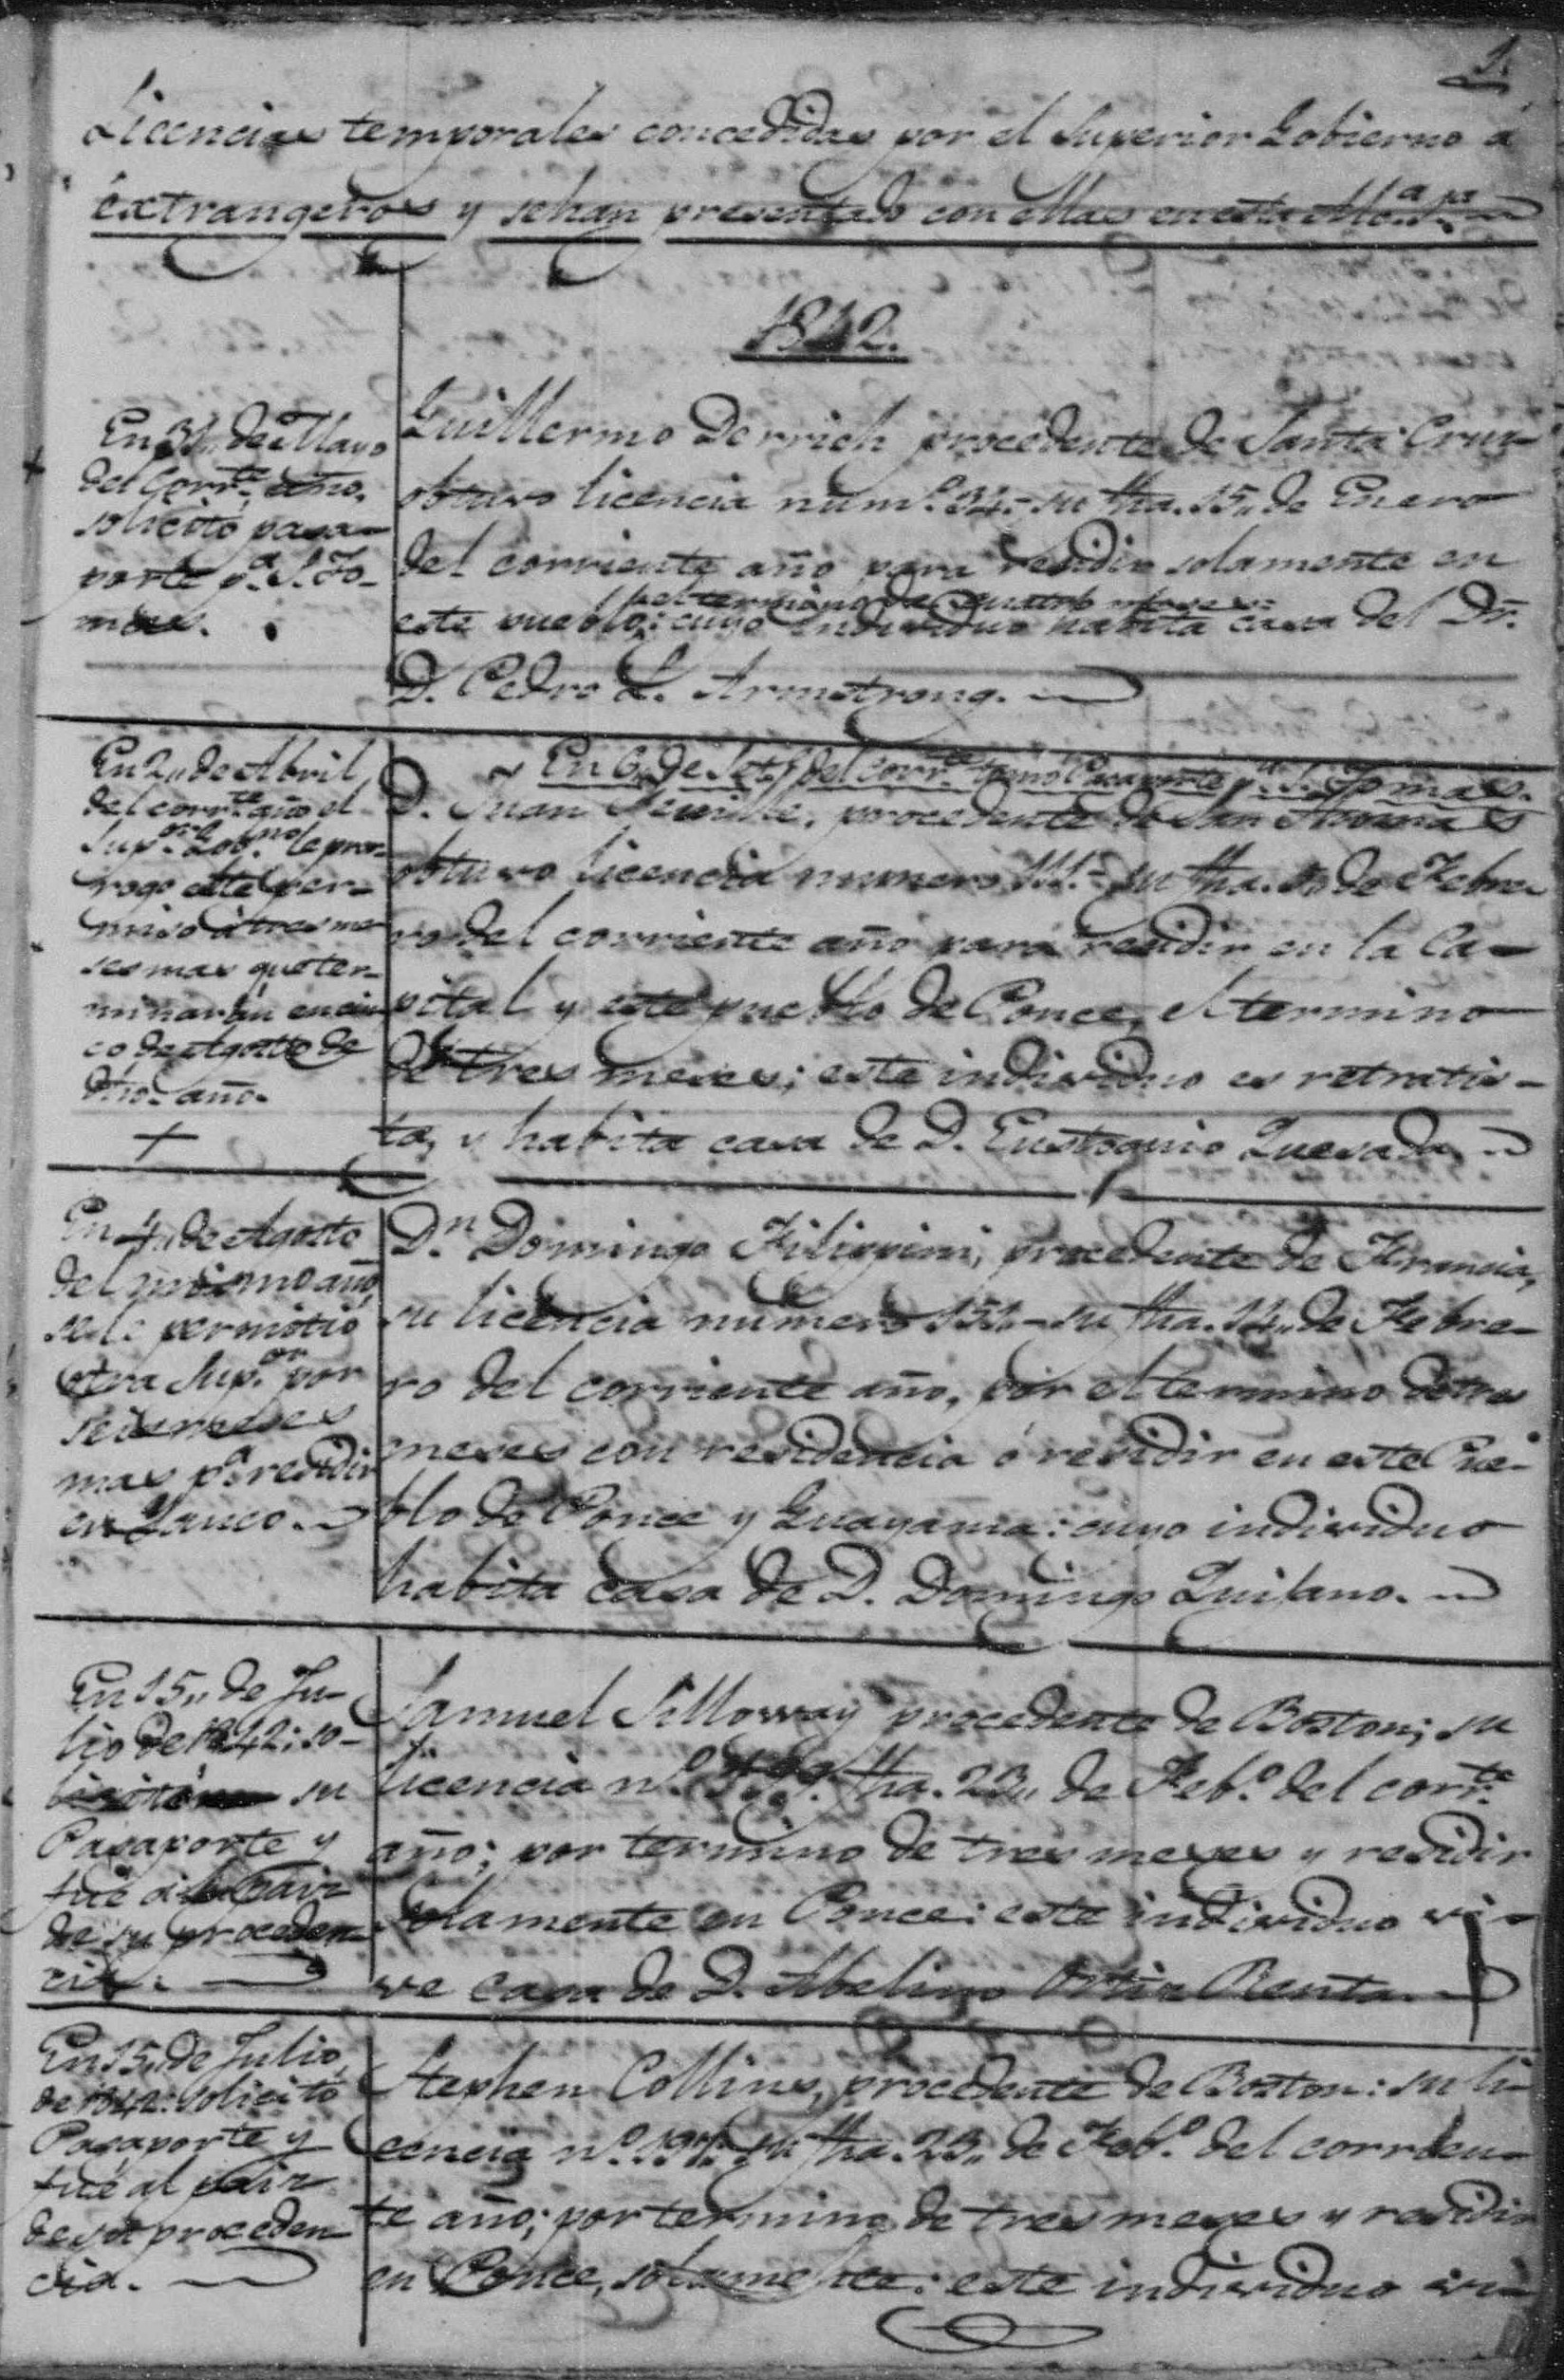 1.
Licencias temporales concedidas por el Superior Gobierno á
extrangeros y se han presentado con ellas en esta
1842.
En 31,, de Mayo
del Corr.te año,
solicitó pasa-
porte p.a S. To-
mas.
Guillermo Derrich procedente de Santa Cruz
obtuvo licencia num.o 34.- su fha. 15,, de Enero
del corriente año para residir solamente en
pel termino de cuatro meses:
este pueblo; cuyo individuo habita casa del Dr.
D. Pedro L. Armstrong.
En 2,, de Abril
del corr.te año el
Sup.or Gob.no le pror-
rogó este per-
miso á tres me-
ses mas que ter-
minarán en cin-
co de Agosto de
dho. año.
+
En 6,, de Set.e del corr.te tomó Pasaporte p.a S. Tomas.
D. Juan procedente de San Thomas
obtuvo licencia numero 111.- su fha. 5,, de Febre-
ro del corriente año para residir en la Ca-
pital y este pueblo de Ponce, el termino
de tres meses; este individuo es retratis-
ta, y habita casa de D. Eustaquio Quesada.
En 4,, de Agosto
del mismo año,
se le permitió
otra Sup.or por
seis meses
mas p.a residir
en Yauco.
D.n Domingo Filippini, procedente de Francia,
su licencia numero 151.- su fha. 12,, de Febre-
ro del corriente año, por el termino de tres
meses con residencia ó residir en este Pue-
blo de Ponce y Guayama: cuyo individuo
habita casa de D. Domingo Quilano.
En 15,, de Ju-
lio de 1842: so-
licitó su
Pasaporte y
fué al Pais
de su proceden-
cia.
Samuel Silloway procedente de Boston; su
licencia n.o fha. 23,, de Feb.o del corr.te
año; por termino de tres meses y residir
solamente en Ponce: este individuo vi-
ve casa de D. Abelino Ortiz Renta.
En 15,, de Julio
de 1842: solicitó
Pasaporte y
fué al pais
de su proceden-
cia.
Stephen Collins, procedente de Boston: su li-
cencia n.o su fha. 23,, de Feb.o del corrien-
te año; por termino de tres meses y residir
en Ponce, solamente: este individuo vi-